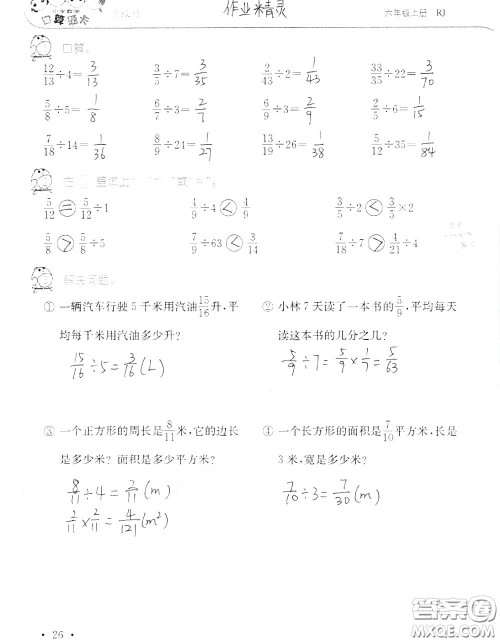 小学数学
口算速
作业精灵
六年级上册 RJ
口算。
12/13÷4=3/13 3/5÷7=3/35 2/43÷2=1/43 33/35÷22=3/70
5/8÷5=1/8 6/7÷3=2/7 2/3÷6=1/9 2/5÷6=1/15
7/18÷14=1/36 8/9÷24=1/27 6/19÷12=1/38 5/12÷35=1/84
5/12=5/12÷1 4/9÷4<4/9 3/5÷2<3/5×2
5/8>5/8÷5 7/9÷63<3/14 7/18÷7>4/21÷4
解决问题。
① 一辆汽车行驶5千米用汽油15/16升,平
均每千米用汽油多少升?
15/16÷5=3/16(L)
② 小林7天读了一本书的5/9,平均每天
读这本书的几分之几?
5/9÷7=5/9×1/7=5/63
③ 一个正方形的周长是8/11米,它的边长
是多少米? 面积是多少平方米?
8/11÷4=2/11(m)
2/11×2/11=4/121(m²)
④ 一个长方形的面积是7/10平方米,长是
3米,宽是多少米?
7/10÷3=7/30(m)
· 26 ·
答案圈
MXQE.COM